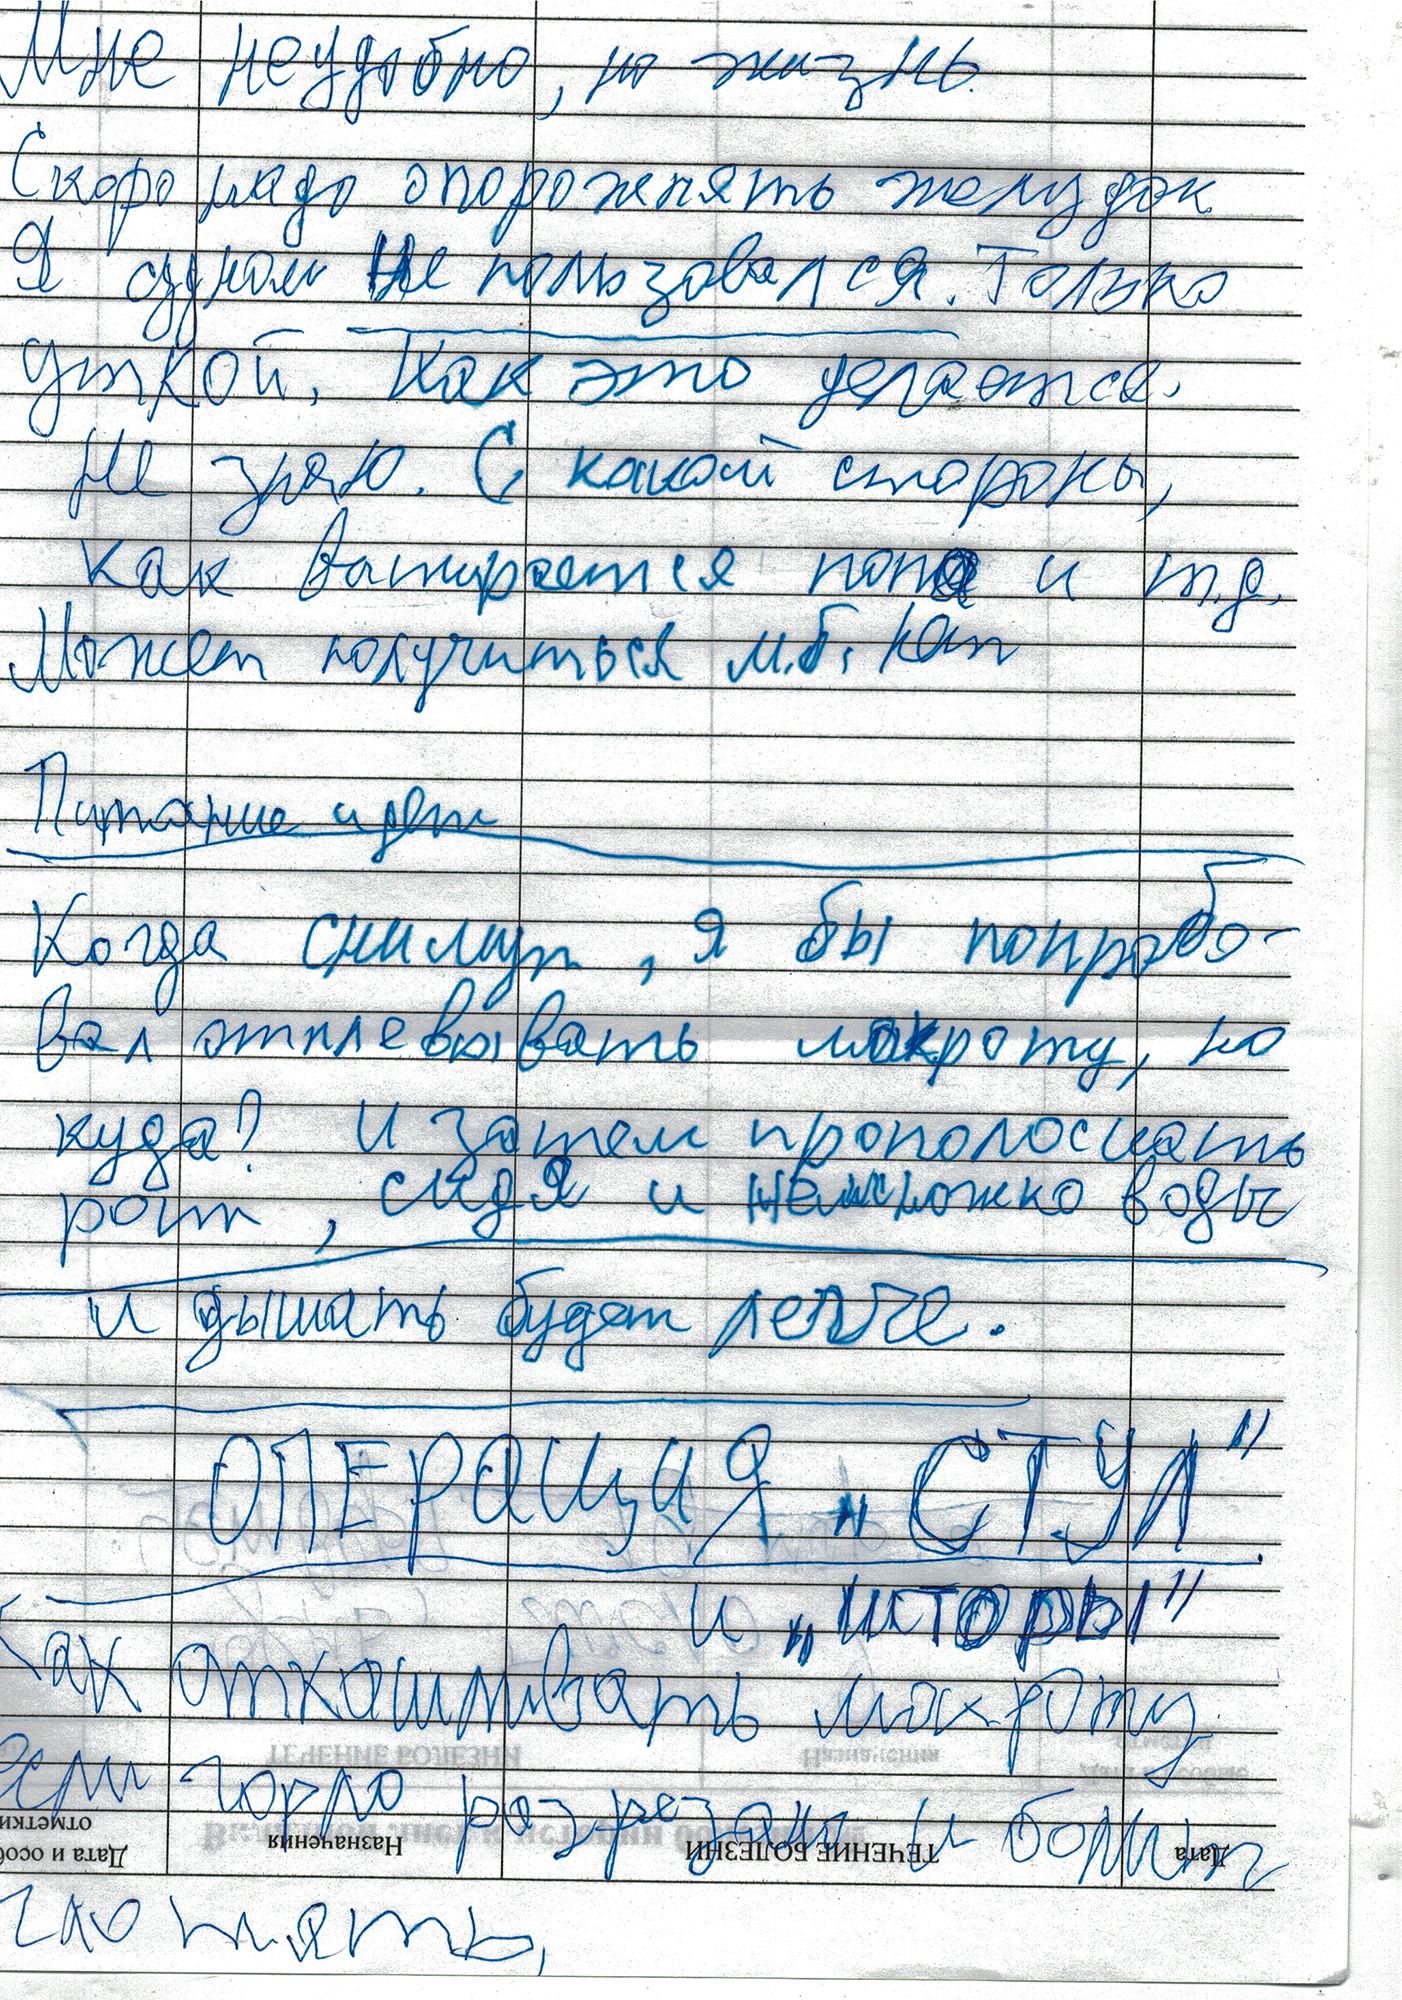 Мне неудобно, но жизнь.
Скоро надо опорожнять желудок
Я судном Не пользовался. Только
уткой. Как это делается.
Не знаю. С какой стороны,
как вытирается попа и т.д.
Может получиться м.б. кат
Питание идет
Когда снимут, я бы попробо-
вал отплевывать мокроту, но
куда? И затем прополоскать
рот, сидя и немножко воды
и дышать будет легче.
ОПЕРАЦИЯ „СТУЛ"
и „шторы"
Как откашливать мокроту
если горло разрезали и болит
глотать,
Дата и особ
отметки
Назначения
ТЕЧЕНИЕ БОЛЕЗНИ
Дата